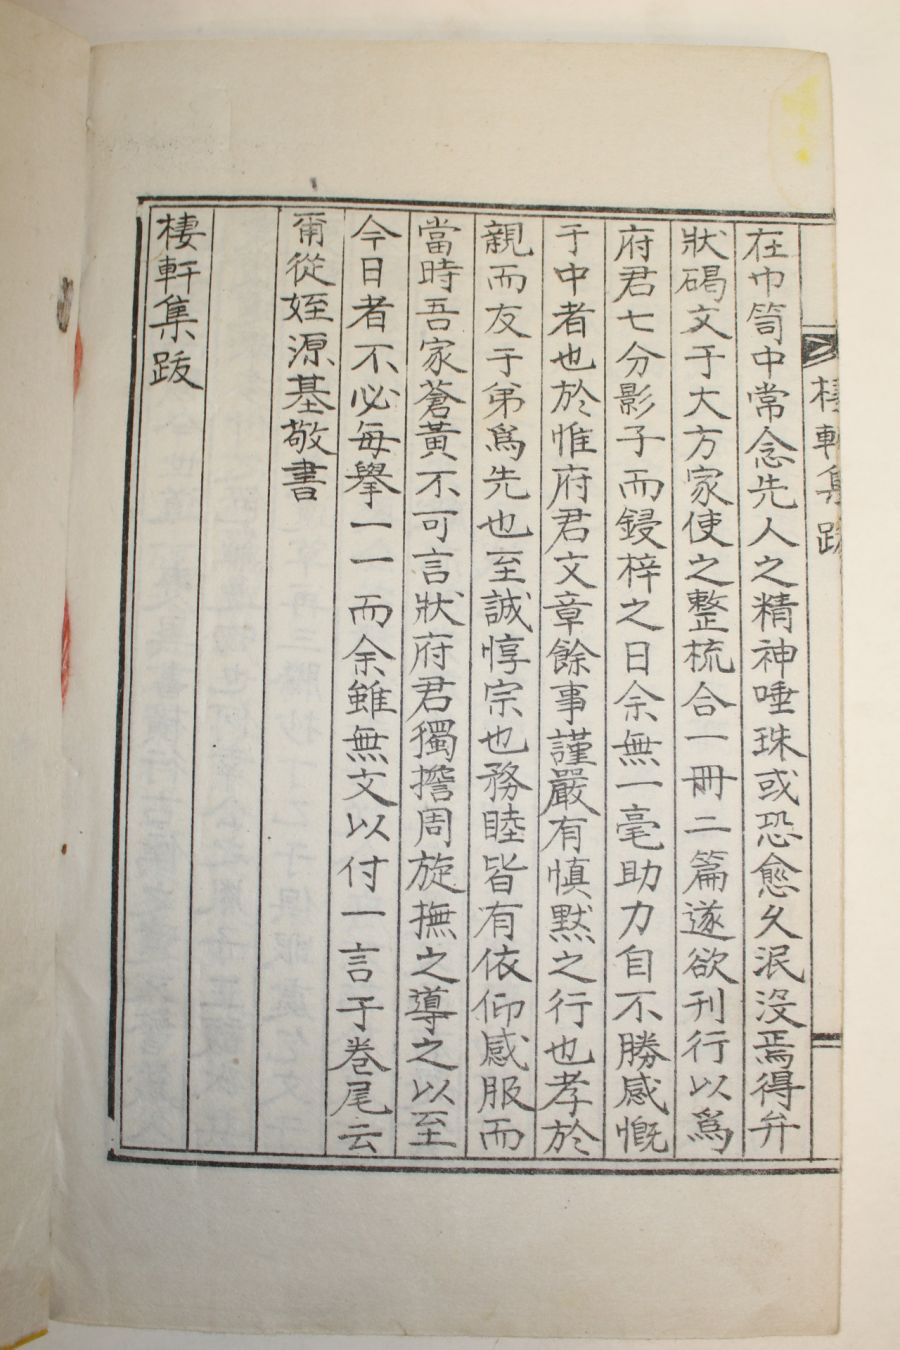 棲軒集跋
在巾笥中常念先人之精神唾珠或恐愈久泯沒焉得弁
狀碣文于大方家使之整梳合一冊二篇遂欲刊行以爲
府君七分影子而鋟梓之日余無一毫助力自不勝感慨
于中者也於惟府君文章餘事謹嚴有愼默之行也孝於
親而友于弟爲先也至誠惇宗也務睦皆有依仰感服而
當時吾家蒼黃不可言狀府君獨擔周旋撫之導之以至
今日者不必每擧一一而余雖無文以付一言于卷尾云
爾從姪源基敬書
棲軒集跋